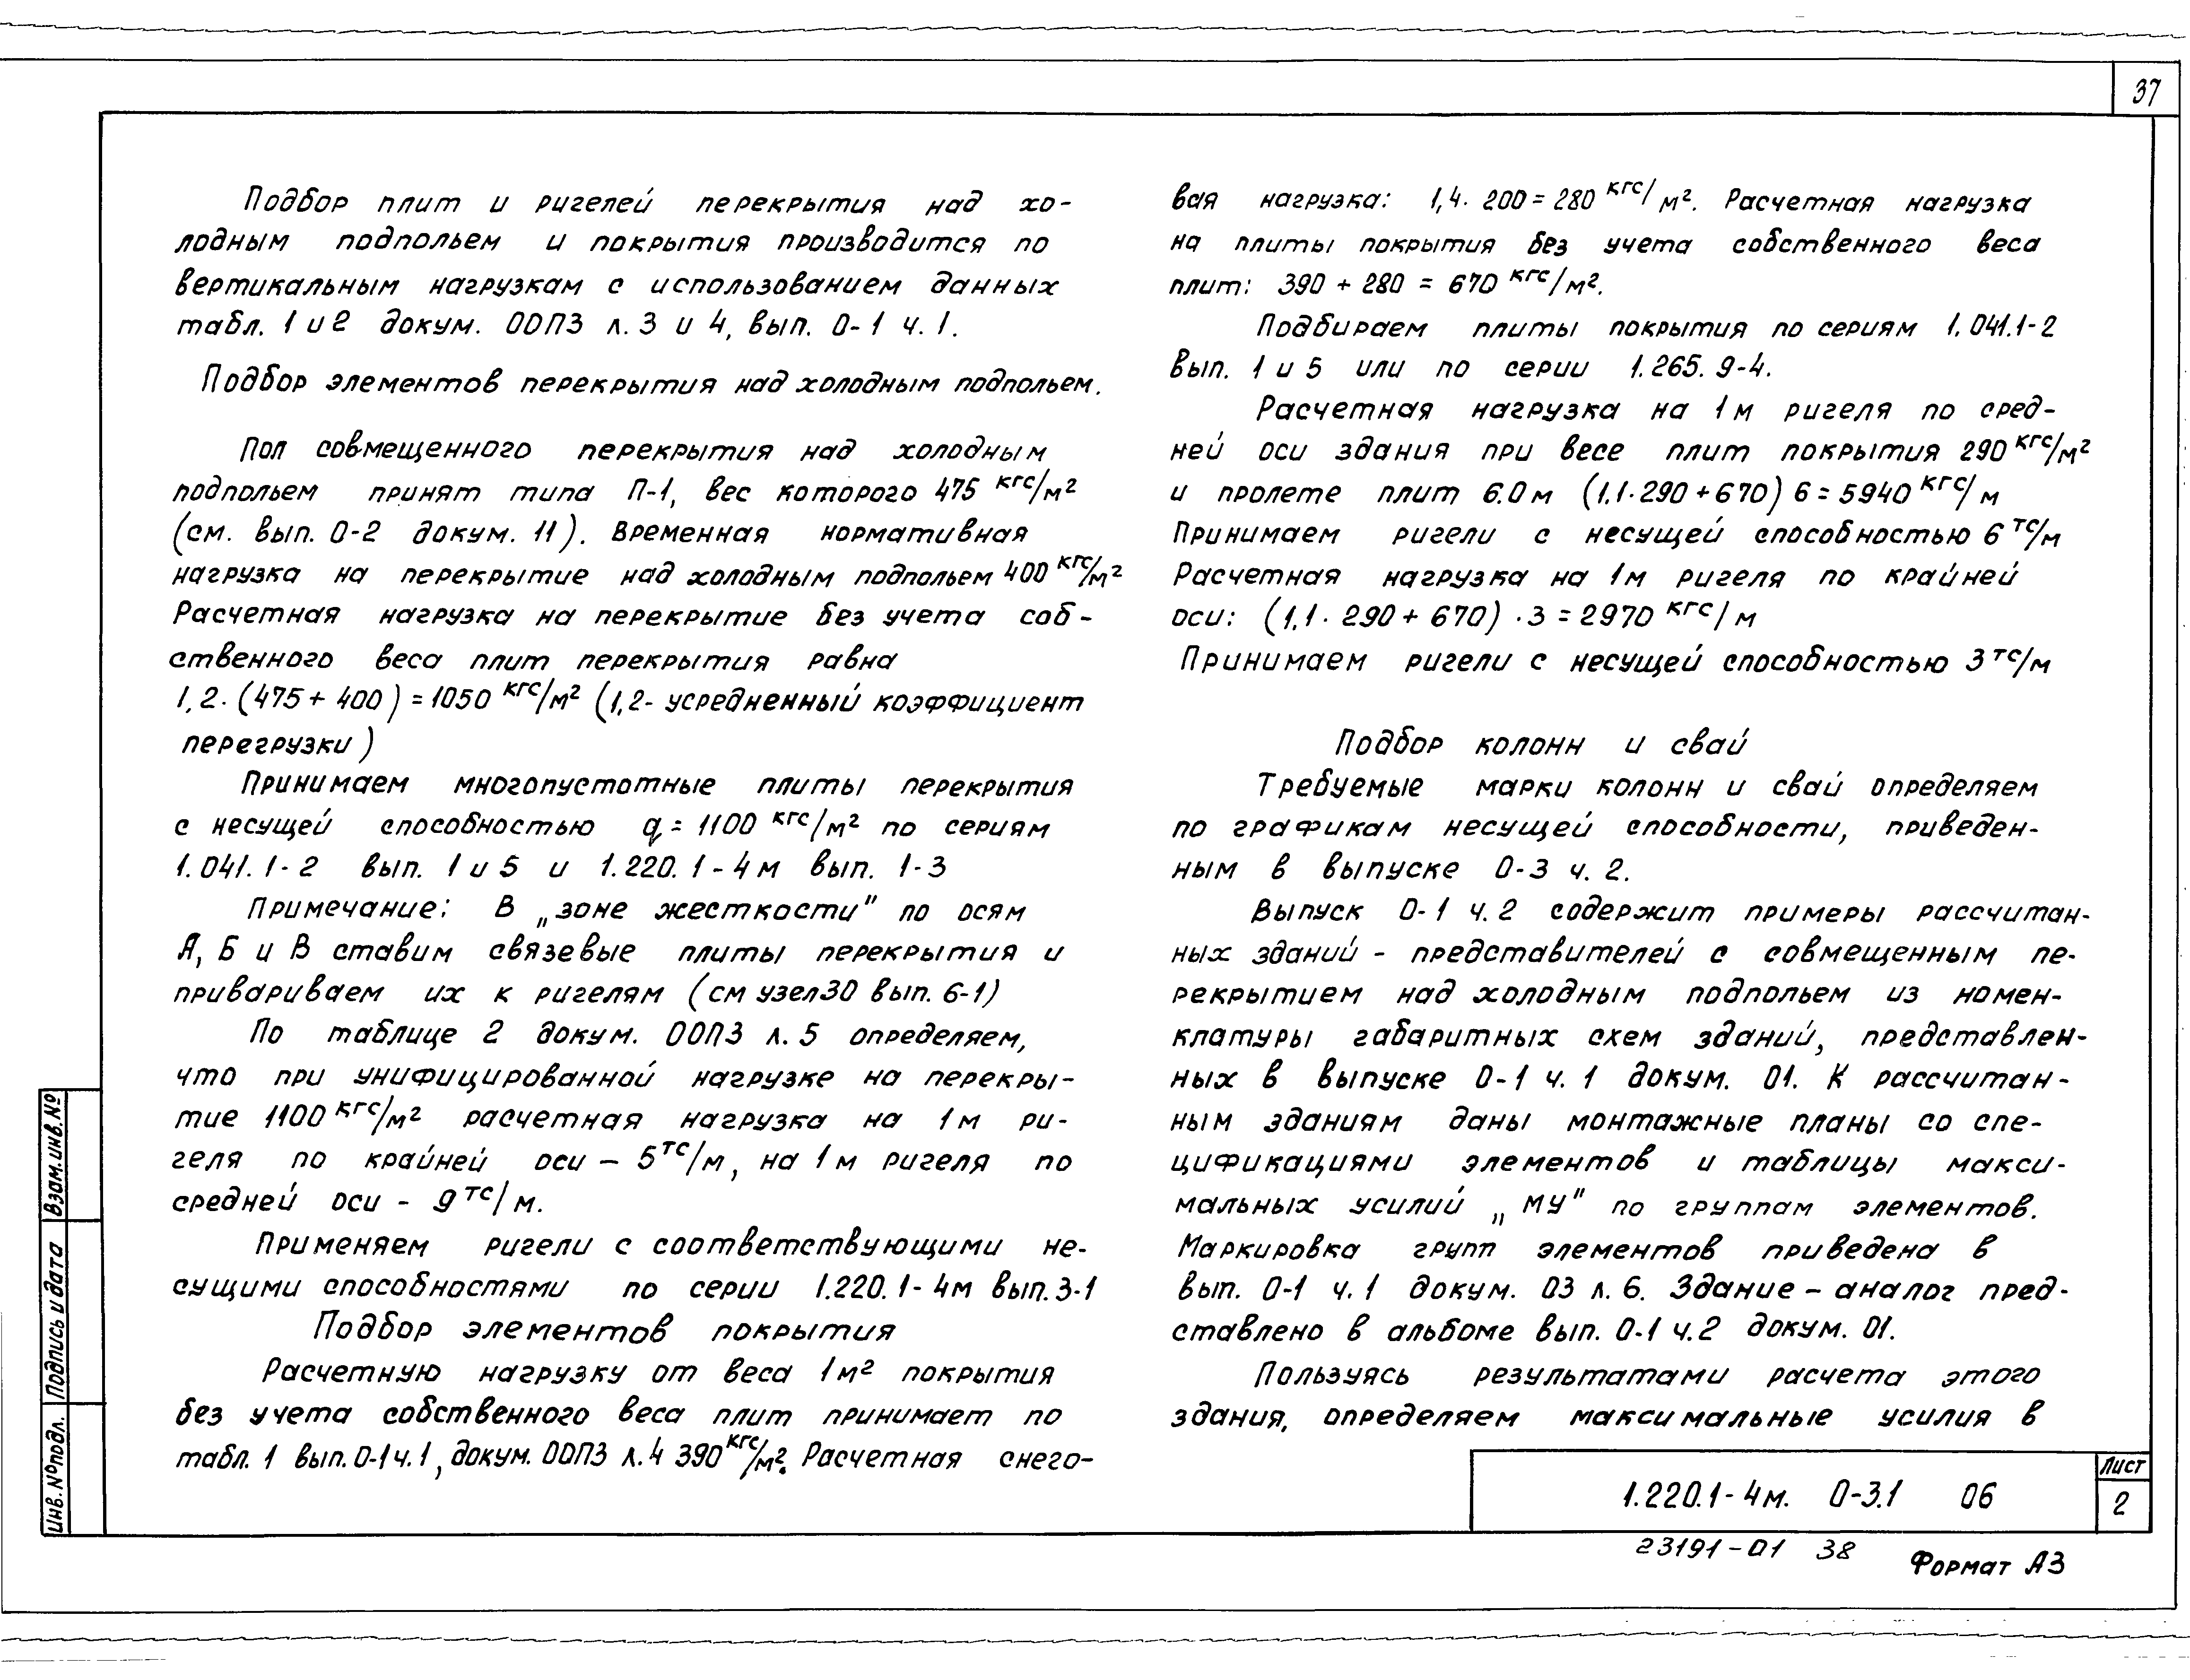 37
Подбор плит и ригелей перекрытия над хо-
лодным подпольем и покрытия производится по
вертикальным нагрузкам с использованием данных
табл. 1 и 2 докум. 00ПЗ л. 3 и 4, вып. 0-1 ч. 1.
Подбор элементов перекрытия над холодным подпольем.
Пол совмещенного перекрытия над холодным
подпольем принят типа П-1, вес которого 475 кгс/м²
(см. вып. 0-2 докум. 11). Временная нормативная
нагрузка на перекрытие над холодным подпольем 400 кгс/м²
Расчетная нагрузка на перекрытие без учета соб-
ственного веса плит перекрытия равна
1,2·(475+400)=1050 кгс/м² (1,2- усредненный коэффициент
перегрузки)
Принимаем многопустотные плиты перекрытия
с несущей способностью q=1100 кгс/м² по сериям
1.041.1-2 вып. 1 и 5 и 1.220.1-4м вып. 1-3
Примечание: В „зоне жесткости" по осям
А, Б и В ставим связевые плиты перекрытия и
привариваем их к ригелям (см узел 30 вып. 6-1)
По таблице 2 докум. 00ПЗ л. 5 определяем,
что при унифицированной нагрузке на перекры-
тие 1100 кгс/м² расчетная нагрузка на 1м ри-
геля по крайней оси – 5 тс/м, на 1м ригеля по
средней оси - 9 тс/м.
Применяем ригели с соответствующими не-
сущими способностями по серии 1.220.1-4м вып. 3-1
Подбор элементов покрытия
Расчетную нагрузку от веса 1м² покрытия
без учета собственного веса плит принимает по
табл. 1 вып. 0-1 ч. 1, докум. 00ПЗ л. 4 390 кгс/м². Расчетная снего-
вая нагрузка: 1,4·200=280 кгс/м². Расчетная нагрузка
на плиты покрытия без учета собственного веса
плит: 390 + 280 = 670 кгс/м².
Подбираем плиты покрытия по сериям 1.041.1-2
вып. 1 и 5 или по серии 1.265.9-4.
Расчетная нагрузка на 1м ригеля по сред-
ней оси здания при весе плит покрытия 290 кгс/м²
и пролете плит 6.0м (1,1·290+670) 6=5940 кгс/м
Принимаем ригели с несущей способностью 6 тс/м
Расчетная нагрузка на 1м ригеля по крайней
оси: (1,1·290+670)·3=2970 кгс/м
Принимаем ригели с несущей способностью 3 тс/м
Подбор колонн и свай
Требуемые марки колонн и свай определяем
по графикам несущей способности, приведен-
ным в выпуске 0-3 ч. 2.
Выпуск 0-1 ч. 2 содержит примеры рассчитан-
ных зданий - представителей с совмещенным пе-
рекрытием над холодным подпольем из номен-
клатуры габаритных схем зданий, представлен-
ных в выпуске 0-1 ч. 1 докум. 01. К рассчитан-
ным зданиям даны монтажные планы со спе-
цификациями элементов и таблицы макси-
мальных усилий „МУ" по группам элементов.
Маркировка групп элементов приведена в
вып. 0-1 ч. 1 докум. 03 л. 6. Здание – аналог пред-
ставлено в альбоме вып. 0-1 ч. 2 докум. 01.
Пользуясь результатами расчета этого
здания, определяем максимальные усилия в
Взам. инв. №
Подпись и дата
Инв. № подл.
1.220.1-4м. 0-3.1 06
Лист
2
23191-01 38
Формат А3